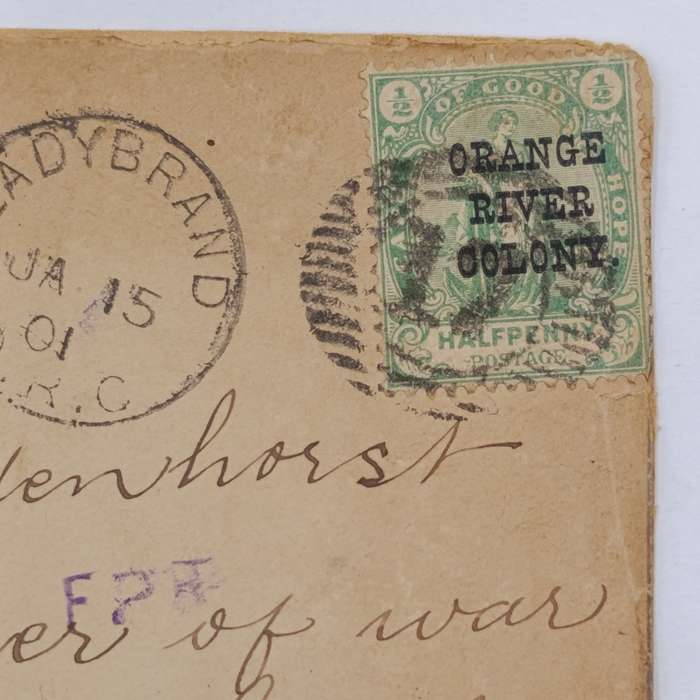 LADYBRAND
JA 15
01
R.C
½ OF GOOD ½
CAPE HOPE
ORANGE
RIVER
COLONY.
HALFPENNY
POSTAGE
denhorst
er of war